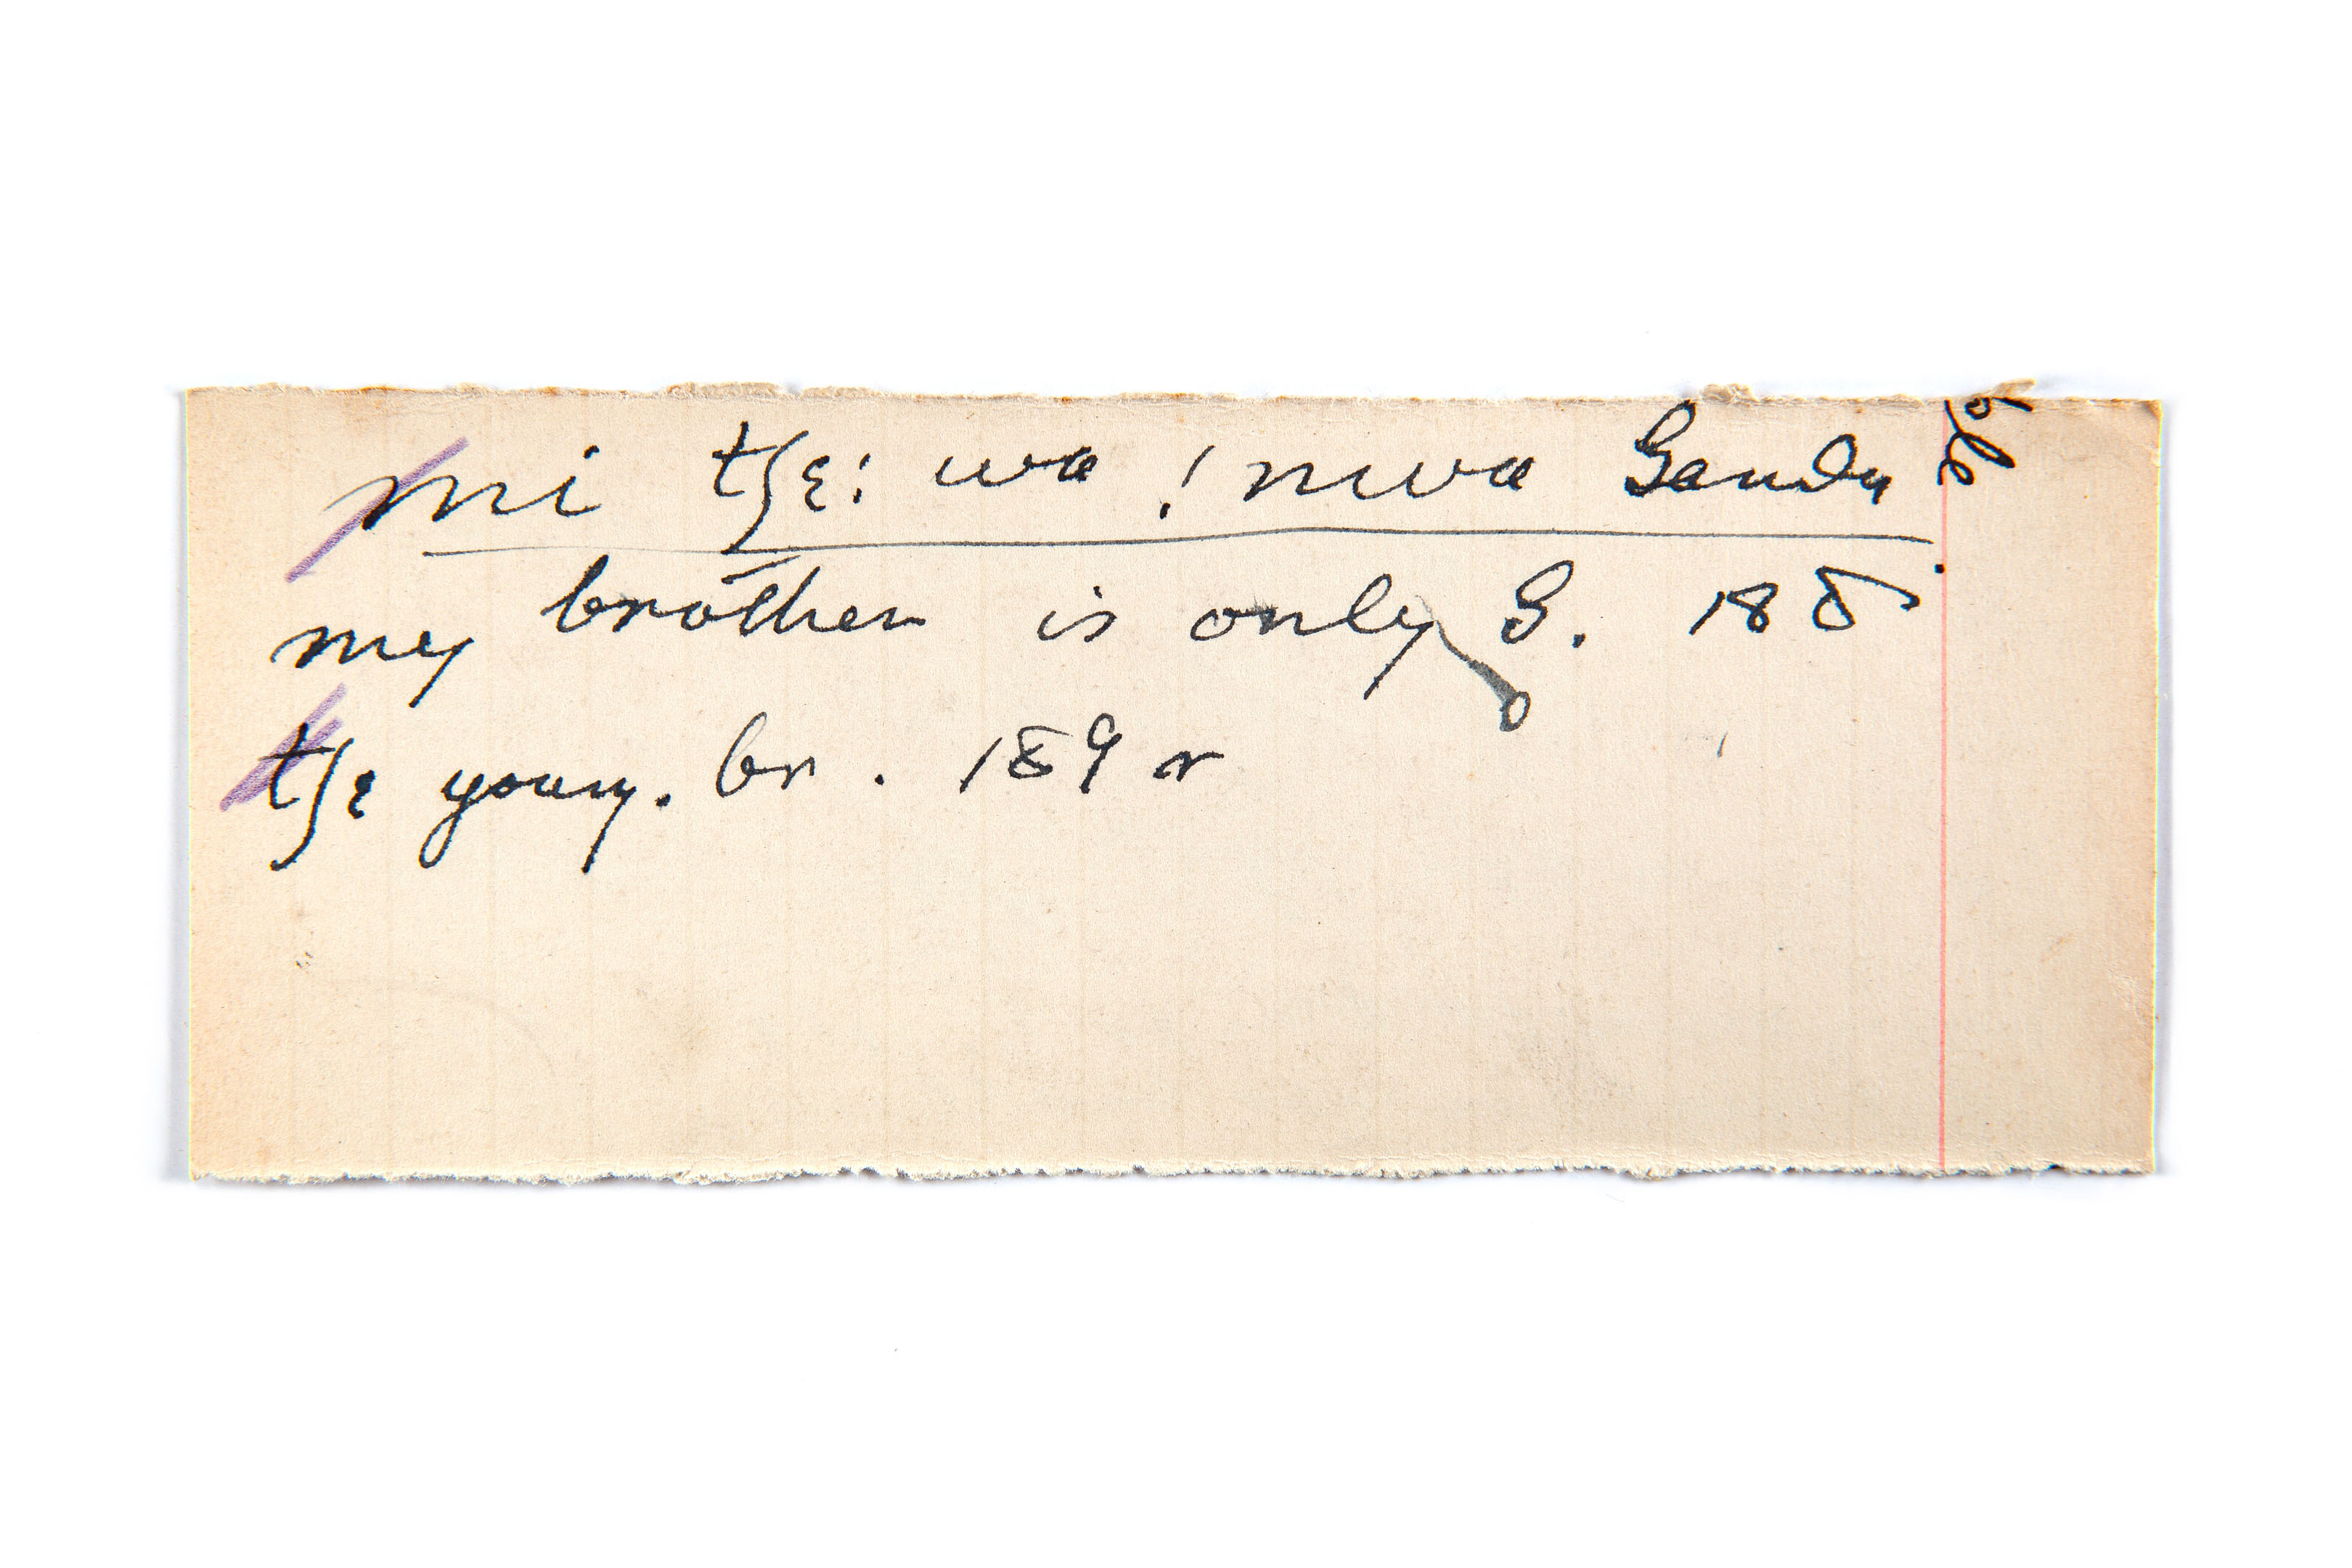 mi tʃɛ: wa ! nwa Sandy
my brother is only S. 188
tʃɛ young. br. 189 r